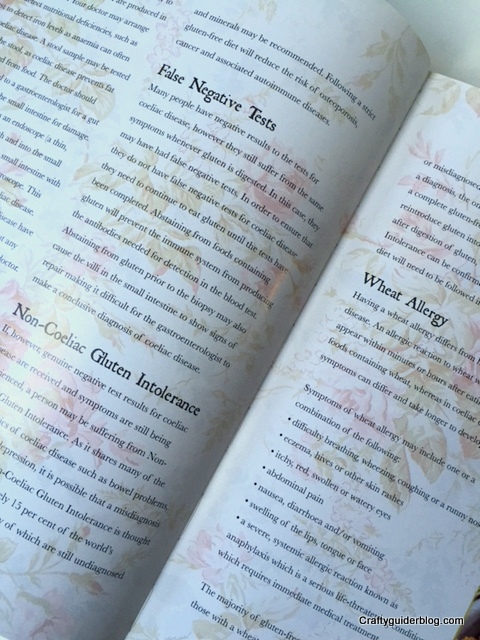 are produced in
Your doctor may arrange
nutritional deficiencies, such as
to detect iron levels as anaemia can often
disease. A stool sample may be tested
the stool, as coeliac disease prevents fat
from food. The doctor should
a gastroenterologist for a gut
small intestine for damage.
an endoscope (a thin,
and into the small
small intestine with
scope. This
disease.
disease have
any
doctor.
and minerals may be recommended. Following a strict
gluten-free diet will reduce the risk of osteoporosis,
cancer and associated autoimmune diseases.
False Negative Tests
Many people have negative results to the tests for
coeliac disease, however they still suffer from the same
symptoms whenever gluten is digested. In this case, they
may have had false negative tests. In order to ensure that
they do not have false negative tests for coeliac disease
they need to continue to eat gluten until the tests have
been completed. Abstaining from foods containing
gluten will prevent the immune system from producing
the antibodies needed for detection in the blood test.
Abstaining from gluten prior to the biopsy may also
cause the villi in the small intestine to show signs of
repair making it difficult for the gastroenterologist to
make a conclusive diagnosis of coeliac disease.
Non-Coeliac Gluten Intolerance
If, however, genuine negative test results for coeliac
disease are received and symptoms are still being
experienced, a person may be suffering from Non-
Gluten Intolerance. As it shares many of the
of coeliac disease such as bowel problems,
depression, it is possible that a misdiagnosis
Non-Coeliac Gluten Intolerance is thought
15 per cent of the world's
of which are still undiagnosed
or misdiagnosed
a diagnosis, the
complete gluten-free
reintroduce gluten into
after digestion of gluten,
Intolerance can be confirmed
diet will need to be followed
Wheat Allergy
Having a wheat allergy differs from
disease. An allergic reaction to wheat
appear within minutes or hours after
foods containing wheat, whereas in coeliac
symptoms can differ and take longer to develop
Symptoms of wheat allergy may include one or a
combination of the following:
• difficulty breathing, wheezing, coughing or a runny nose
• eczema, hives or other skin rashes
• itchy, red, swollen or watery eyes
• abdominal pain
• nausea, diarrhoea and/or vomiting
• swelling of the lips, tongue or face
• a severe, systemic allergic reaction known as
anaphylaxis which is a serious life-threatening condition
which requires immediate medical treatment
The majority of gluten-free
those with a wheat
Craftyguiderblog.com